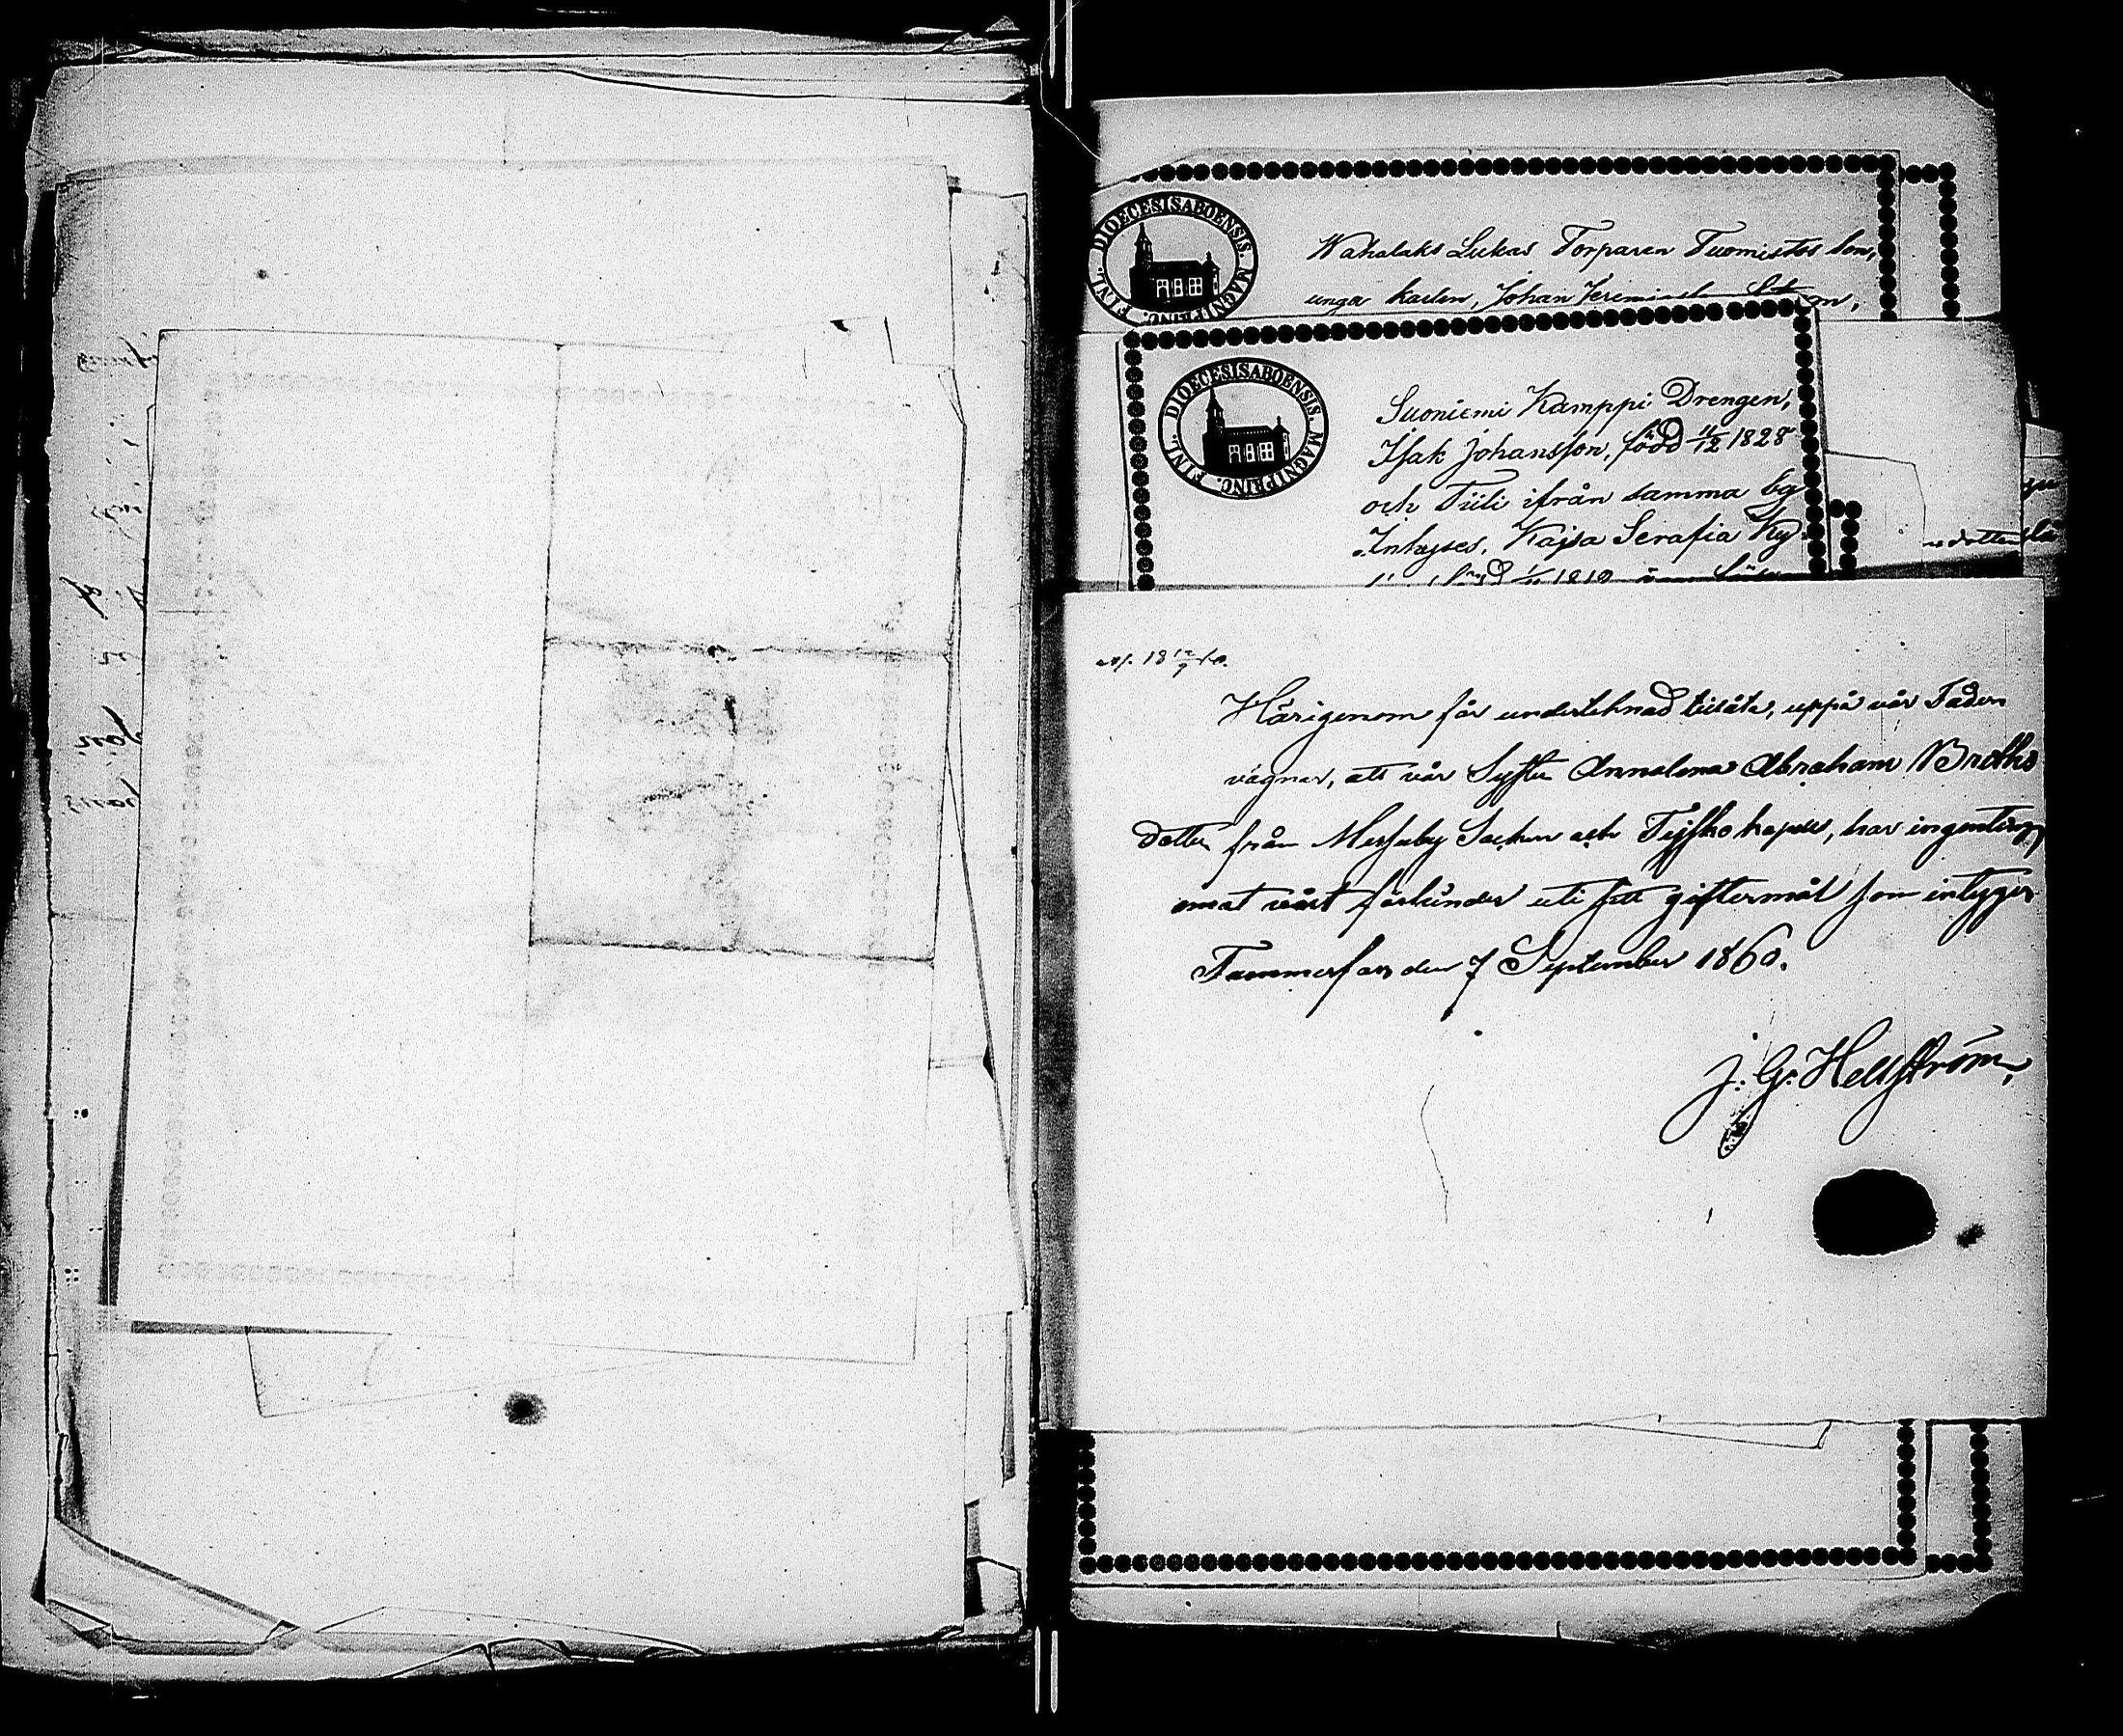 DIOECESIS ABOENSIS. MAGNI PRINC. FINL.
Wahalaks Lukas Torparen Tuomistos son,
unga karlen, Johan Jeremias
DIOECESIS ABOENSIS. MAGNI PRINC. FINL.
Suoniemi Kamppi Drengen,
Isak Johansson, född 11/12 1828
och Tiili ifrån samma by
Inhyses, Kajsa Serafia Ky
född
Härigenom får underteknad tillåta, uppå vår Faders
vägnar, att vår Syster Annalena Abraham Breths
dotter från Messuby Socken och Tejsko kapell, har ingenting
emot vårt förhinder uti sitt giftermål som intygger
Tammerfors den 7 September 1860.
J. G. Hellström,